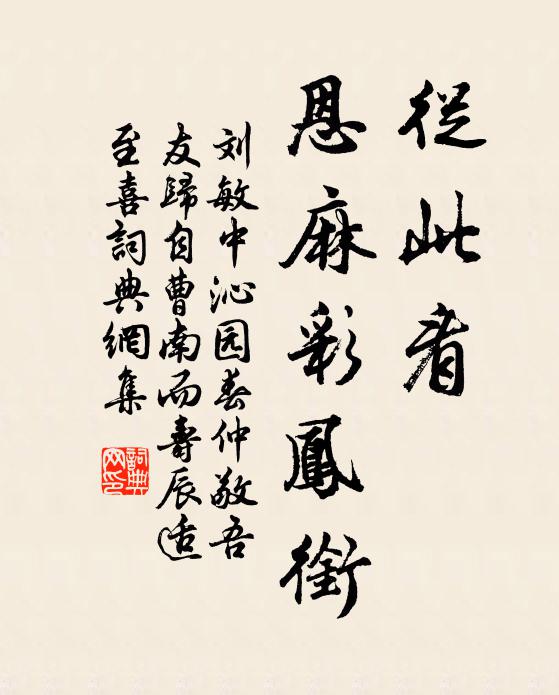 從此看
恩麻彩鳳銜
刘敏中沁园春仲敬吾
友歸自曹南而壽辰适
至喜詞典網集
詞典网印